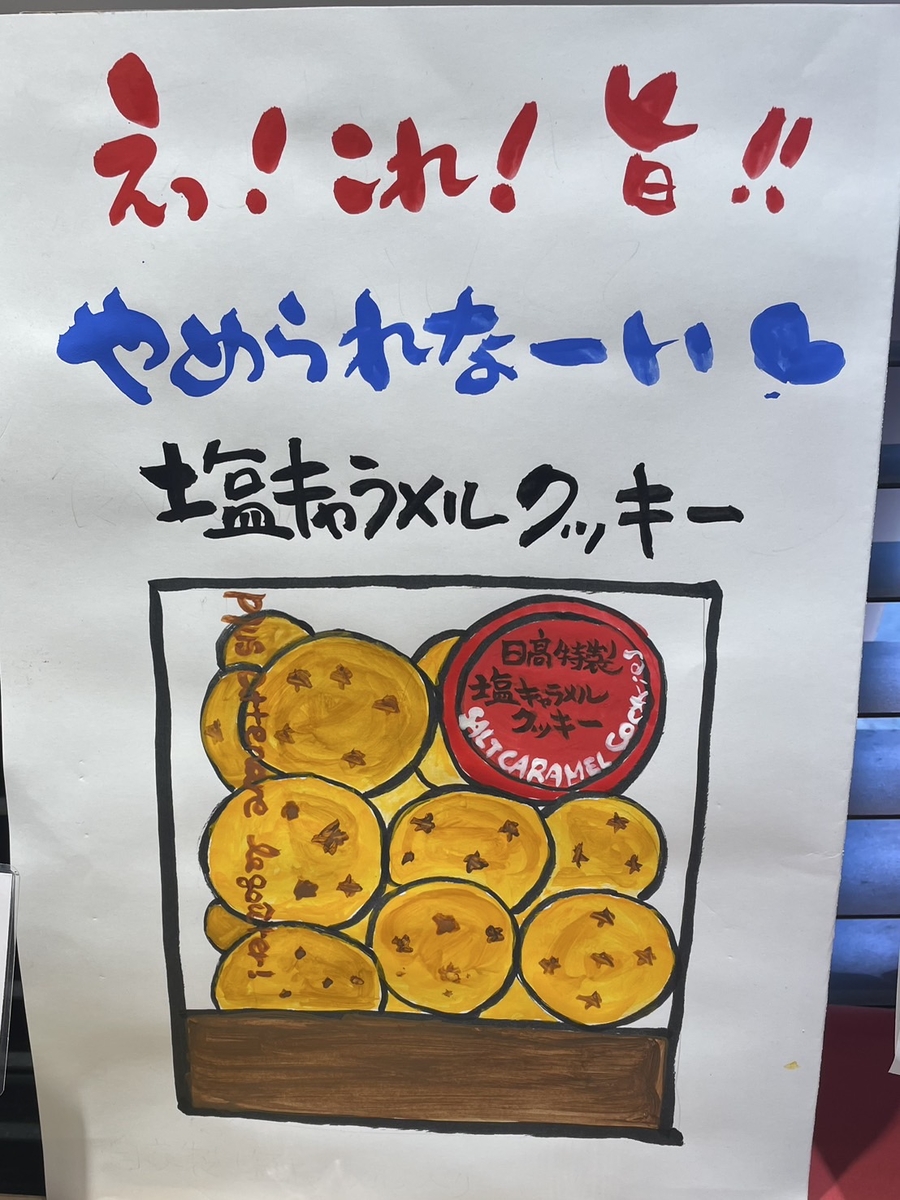 えっ！これ！旨!!
やめられなーい
塩キャラメルクッキー
日高特製
塩キャラメル
クッキー
SALT CARAMEL COOKIES
plus attendre le goûter!